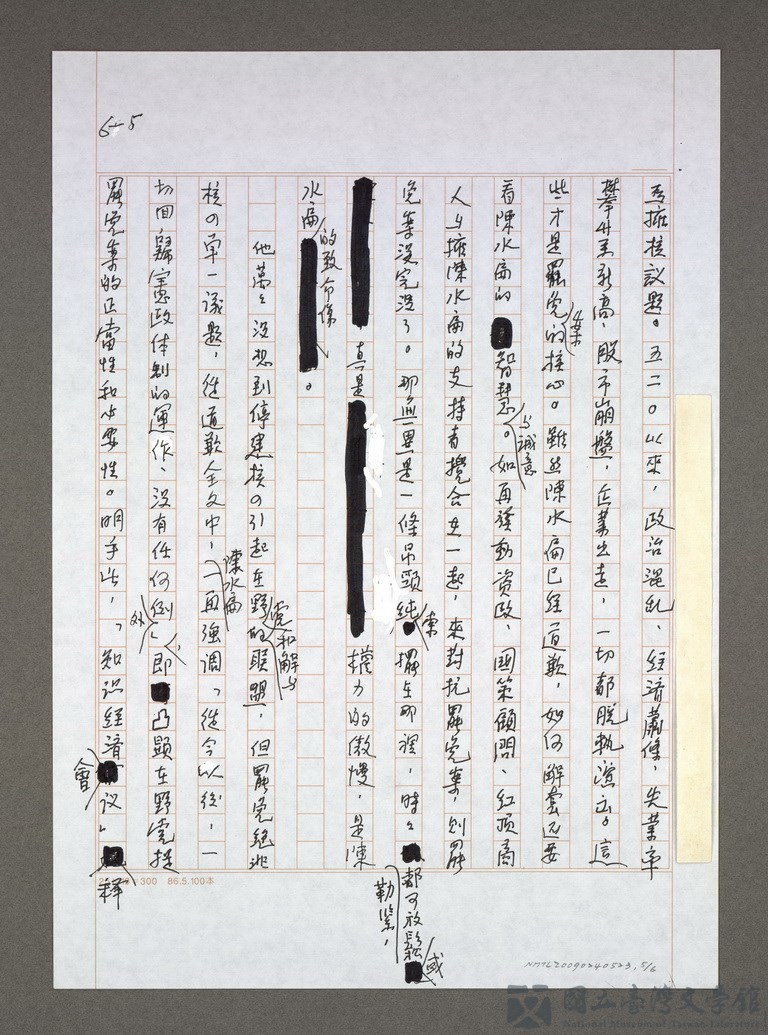 6-5
核議題。五二〇以來，政治混亂、經濟蕭條，失業率
攀升至新高，股市崩盤，企業出走，一切都脫軌演出。這
些才是罷免案的核心。雖然陳水扁已經道歉，如何解套還要
看陳水扁的智慧與誠意。如再發動資政、國策顧問、紅頂商
人與擁陳水扁的支持者攪合在一起，來對抗罷免案，則罷
免案沒完沒了。那無異是一條吊頸繩索擺在那裡，時時都可放鬆或
勒緊，
真是權力的傲慢，是陳
水扁的致命傷。
他萬萬沒想到停建核四引起在野黨和解與的聯盟，但罷免絕非
核四單一議題，從道歉全文中，陳水扁一再強調「從今以後，一
切回歸憲政体制的運作，沒有任何例外」，即凸顯在野黨提
罷免案的正當性和必要性。明乎此，「知識經濟會議」釋
300 86.5.100本
NMTL20090240523,5/6
國立臺灣文學館
National Museum of Taiwan Literature